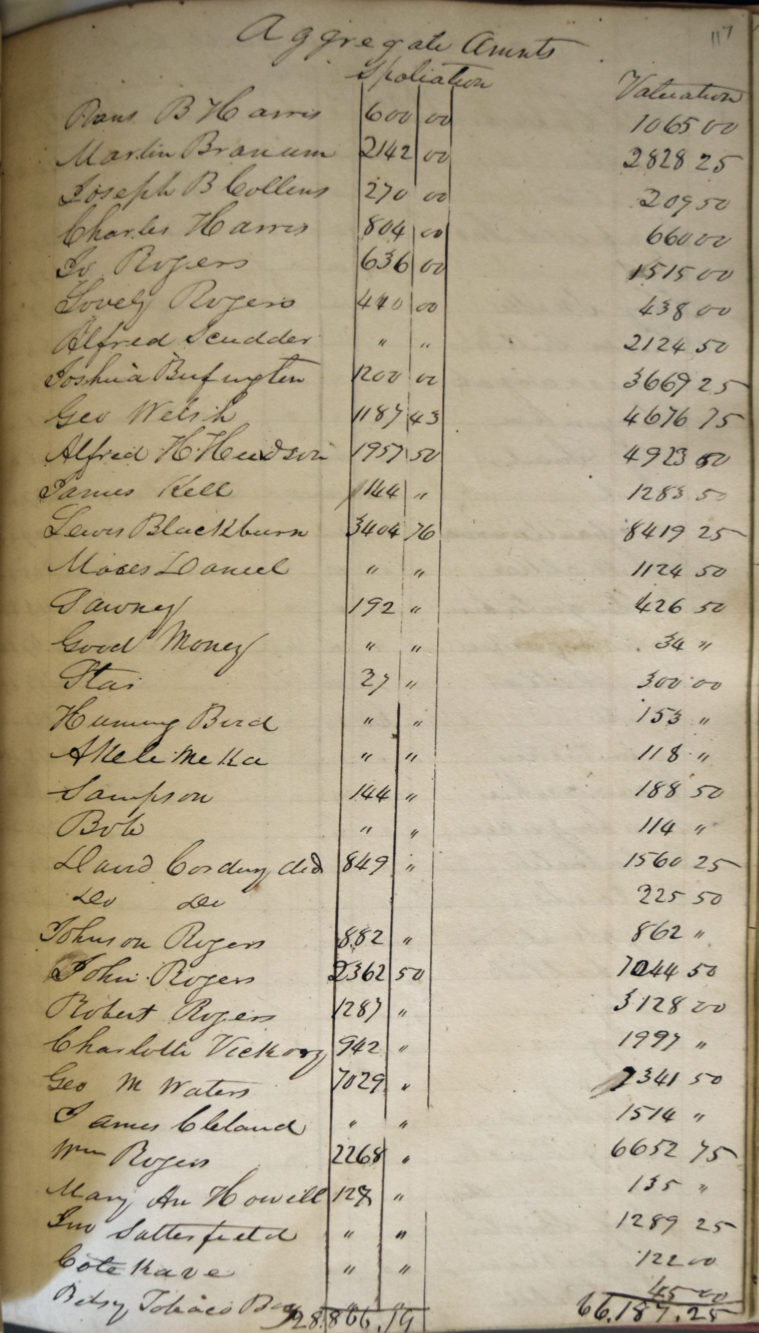 117
Aggregate Amnts
Spoliation Valuation
B Harris 600 00 1065 00
Martin Branum 2142 00 2828 25
Joseph B Collens 270 00 209 50
Charles Harris 804 00 660 00
Jo Rogers 636 00 1515 00
Lovely Rogers 440 00 438 00
Alfred Scudder " " 2124 50
Joshua Bufington 1200 00 3669 25
Geo Welsh 1187 43 4676 75
Alfred H Hudson 1957 50 4923 50
James Kell 144 " 1283 50
Lewis Blackburn 3404 76 8419 25
Moses Daniel " " 1124 50
Pawney 192 " 426 50
Good Money " " 34 "
27 " 300 00
Huming Bird " " 153 "
" " 118 "
Sampson 144 " 188 50
Bob " " 114 "
David Cordery decd 849 " 1560 25
Do Do 225 50
Johnson Rogers 882 " 862 "
John Rogers 2362 50 7044 50
Robert Rogers 1287 " 3128 00
Charlotte Vickory 942 " 1997 "
Geo M Waters 7029 " 7341 50
James Cleland " " 1514 "
Wm Rogers 2268 " 6652 75
Mary An Howell 127 " 135 "
Jno Satterfield " " 1289 25
Cote Kave " " 122 00
Betsy Tobaco 45 00
28.866.19 66.187.25